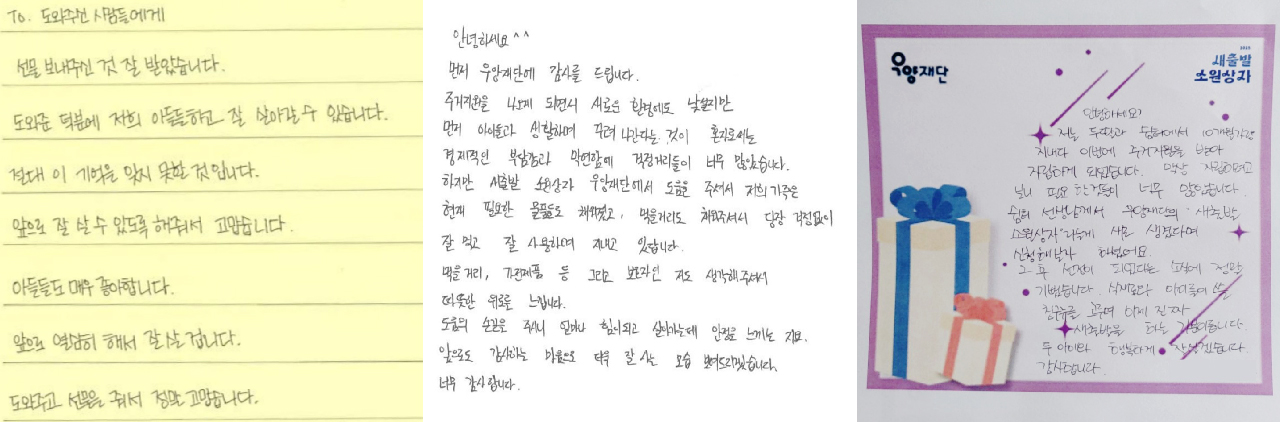 To. 도와주신 사람들에게
선물 보내주신 것 잘 받았습니다.
도와준 덕분에 저희 아들들하고 잘 살아갈 수 있습니다.
절대 이 기억을 잊지 못할 것입니다.
앞으로 잘 살 수 있도록 해줘서 고맙습니다.
아들들도 매우 좋아합니다.
앞으로 열심히 해서 잘 사는 겁니다.
도와주고 선물을 줘서 정말 고맙습니다.
안녕하세요^^
먼저 우양재단에 감사를 드립니다.
주거지원을 나오게 되면서 새로운 환경에도 낯설지만
먼저 아이들과 생활하며 꾸려 나간다는 것이 혼자로써는
경제적인 부담감과 막연함에 걱정거리들이 너무 많았습니다.
하지만 새출발 소원상자 우양재단에서 도움을 주셔서 저희 가족은
현재 필요한 물품들도 채워졌고, 먹을거리도 채워주셔서 당장 걱정없이
잘 먹고 잘 사용하며 지내고 있답니다.
먹을거리, 가전제품 등 그리고 보호자인 저도 생각해주셔서
따뜻한 위로를 느낍니다.
도움의 손길을 주시니 얼마나 힘이되고 살아가는데 안정을 느끼는 지요.
앞으로도 감사하는 마음으로 더욱 잘 사는 모습 보여드리겠습니다.
너무 감사합니다.
우양재단
새출발
소원상자
안녕하세요?
저는 두딸과 쉼터에서 10개월가량
지내다 이번에 주거지원을 받아
자립하게 되었습니다. 막상 자립하려고
보니 필요한것들이 너무 많았습니다.
쉼터 선생님께서 우양재단의 '새출발
소원상자'라는게 새로 생겼다며
신청해보자 하셨어요.
그 후 선정이 되었다는 소식에 정말
기뻤습니다. 아이들이 쓸
침구를 꾸며 이제 진짜
새출발을 하는 기분이듭니다.
두 아이와 행복하게 잘살겠습니다.
감사합니다.